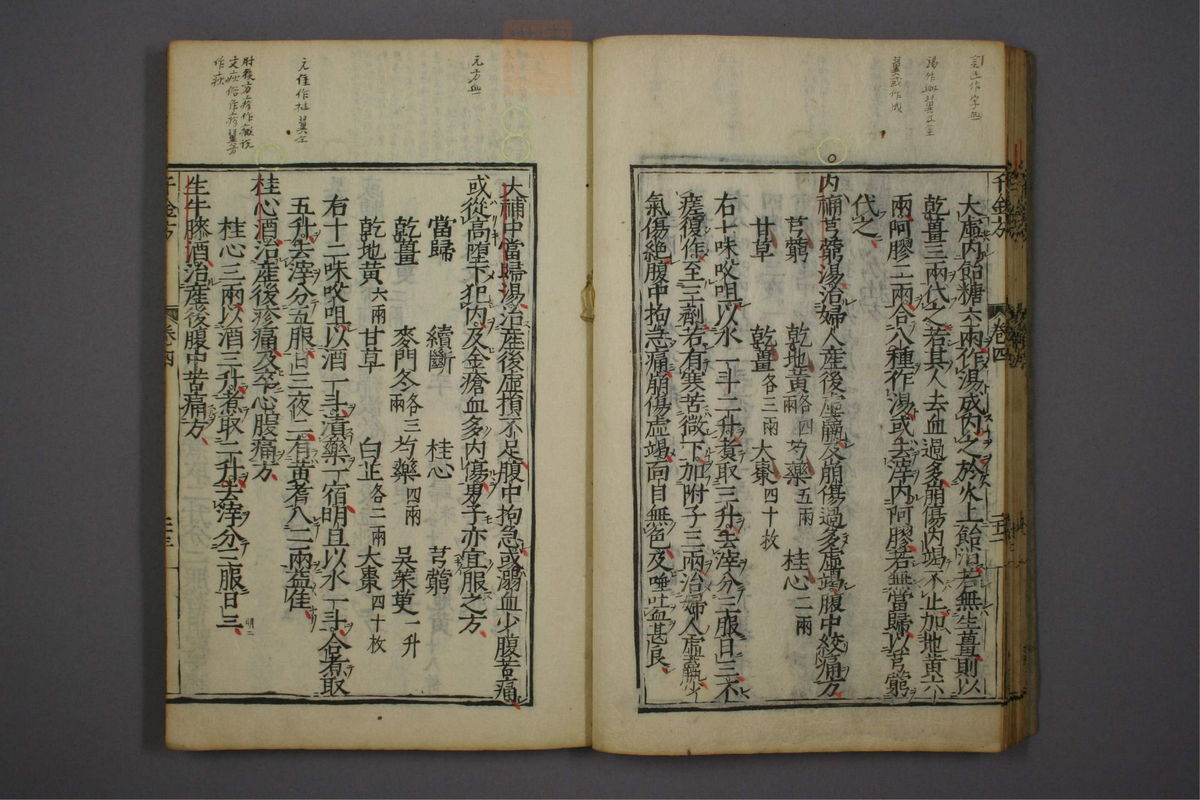 大虛內飴糖六兩作湯成內之於火上飴消若無生薑則以
乾薑三兩代之若其人去血過多崩傷內竭不止加地黃六
兩阿膠二兩合八種作湯或去滓內阿膠若無當歸以芎藭
代之
內補芎藭湯治婦人產後虛羸及崩傷過多虛竭腹中㽲痛方
芎藭 乾地黃各四兩 芍藥五兩 桂心二兩
甘草 乾薑各三兩 大棗四十枚
右七味㕮咀以水一斗二升煮取三升去滓分三服日三不
瘥復作至三劑若有寒苦微下加附子三兩治婦人虛羸少
氣傷絕腹中拘急痛崩傷虛竭面目無色及唾吐血甚良
千金方 卷四
大補中當歸湯治產後虛損不足腹中拘急或溺血少腹苦痛
或從高墮下犯內及金瘡血多內傷男子亦宜服之方
當歸 續斷 桂心 芎藭
乾薑 麥門冬各三兩 芍藥四兩 吳茱萸一升
乾地黃六兩 甘草 白芷各二兩 大棗四十枚
右十二味㕮咀以酒一斗漬藥一宿明旦以水一斗合煮取
五升去滓分五服日三夜二有黃耆入二兩益佳
桂心酒治產後疹痛及卒心腹痛方
桂心三兩以酒三升煮取二升去滓分三服日三
生牛膝酒治產後腹中苦痛方
千金方 卷四